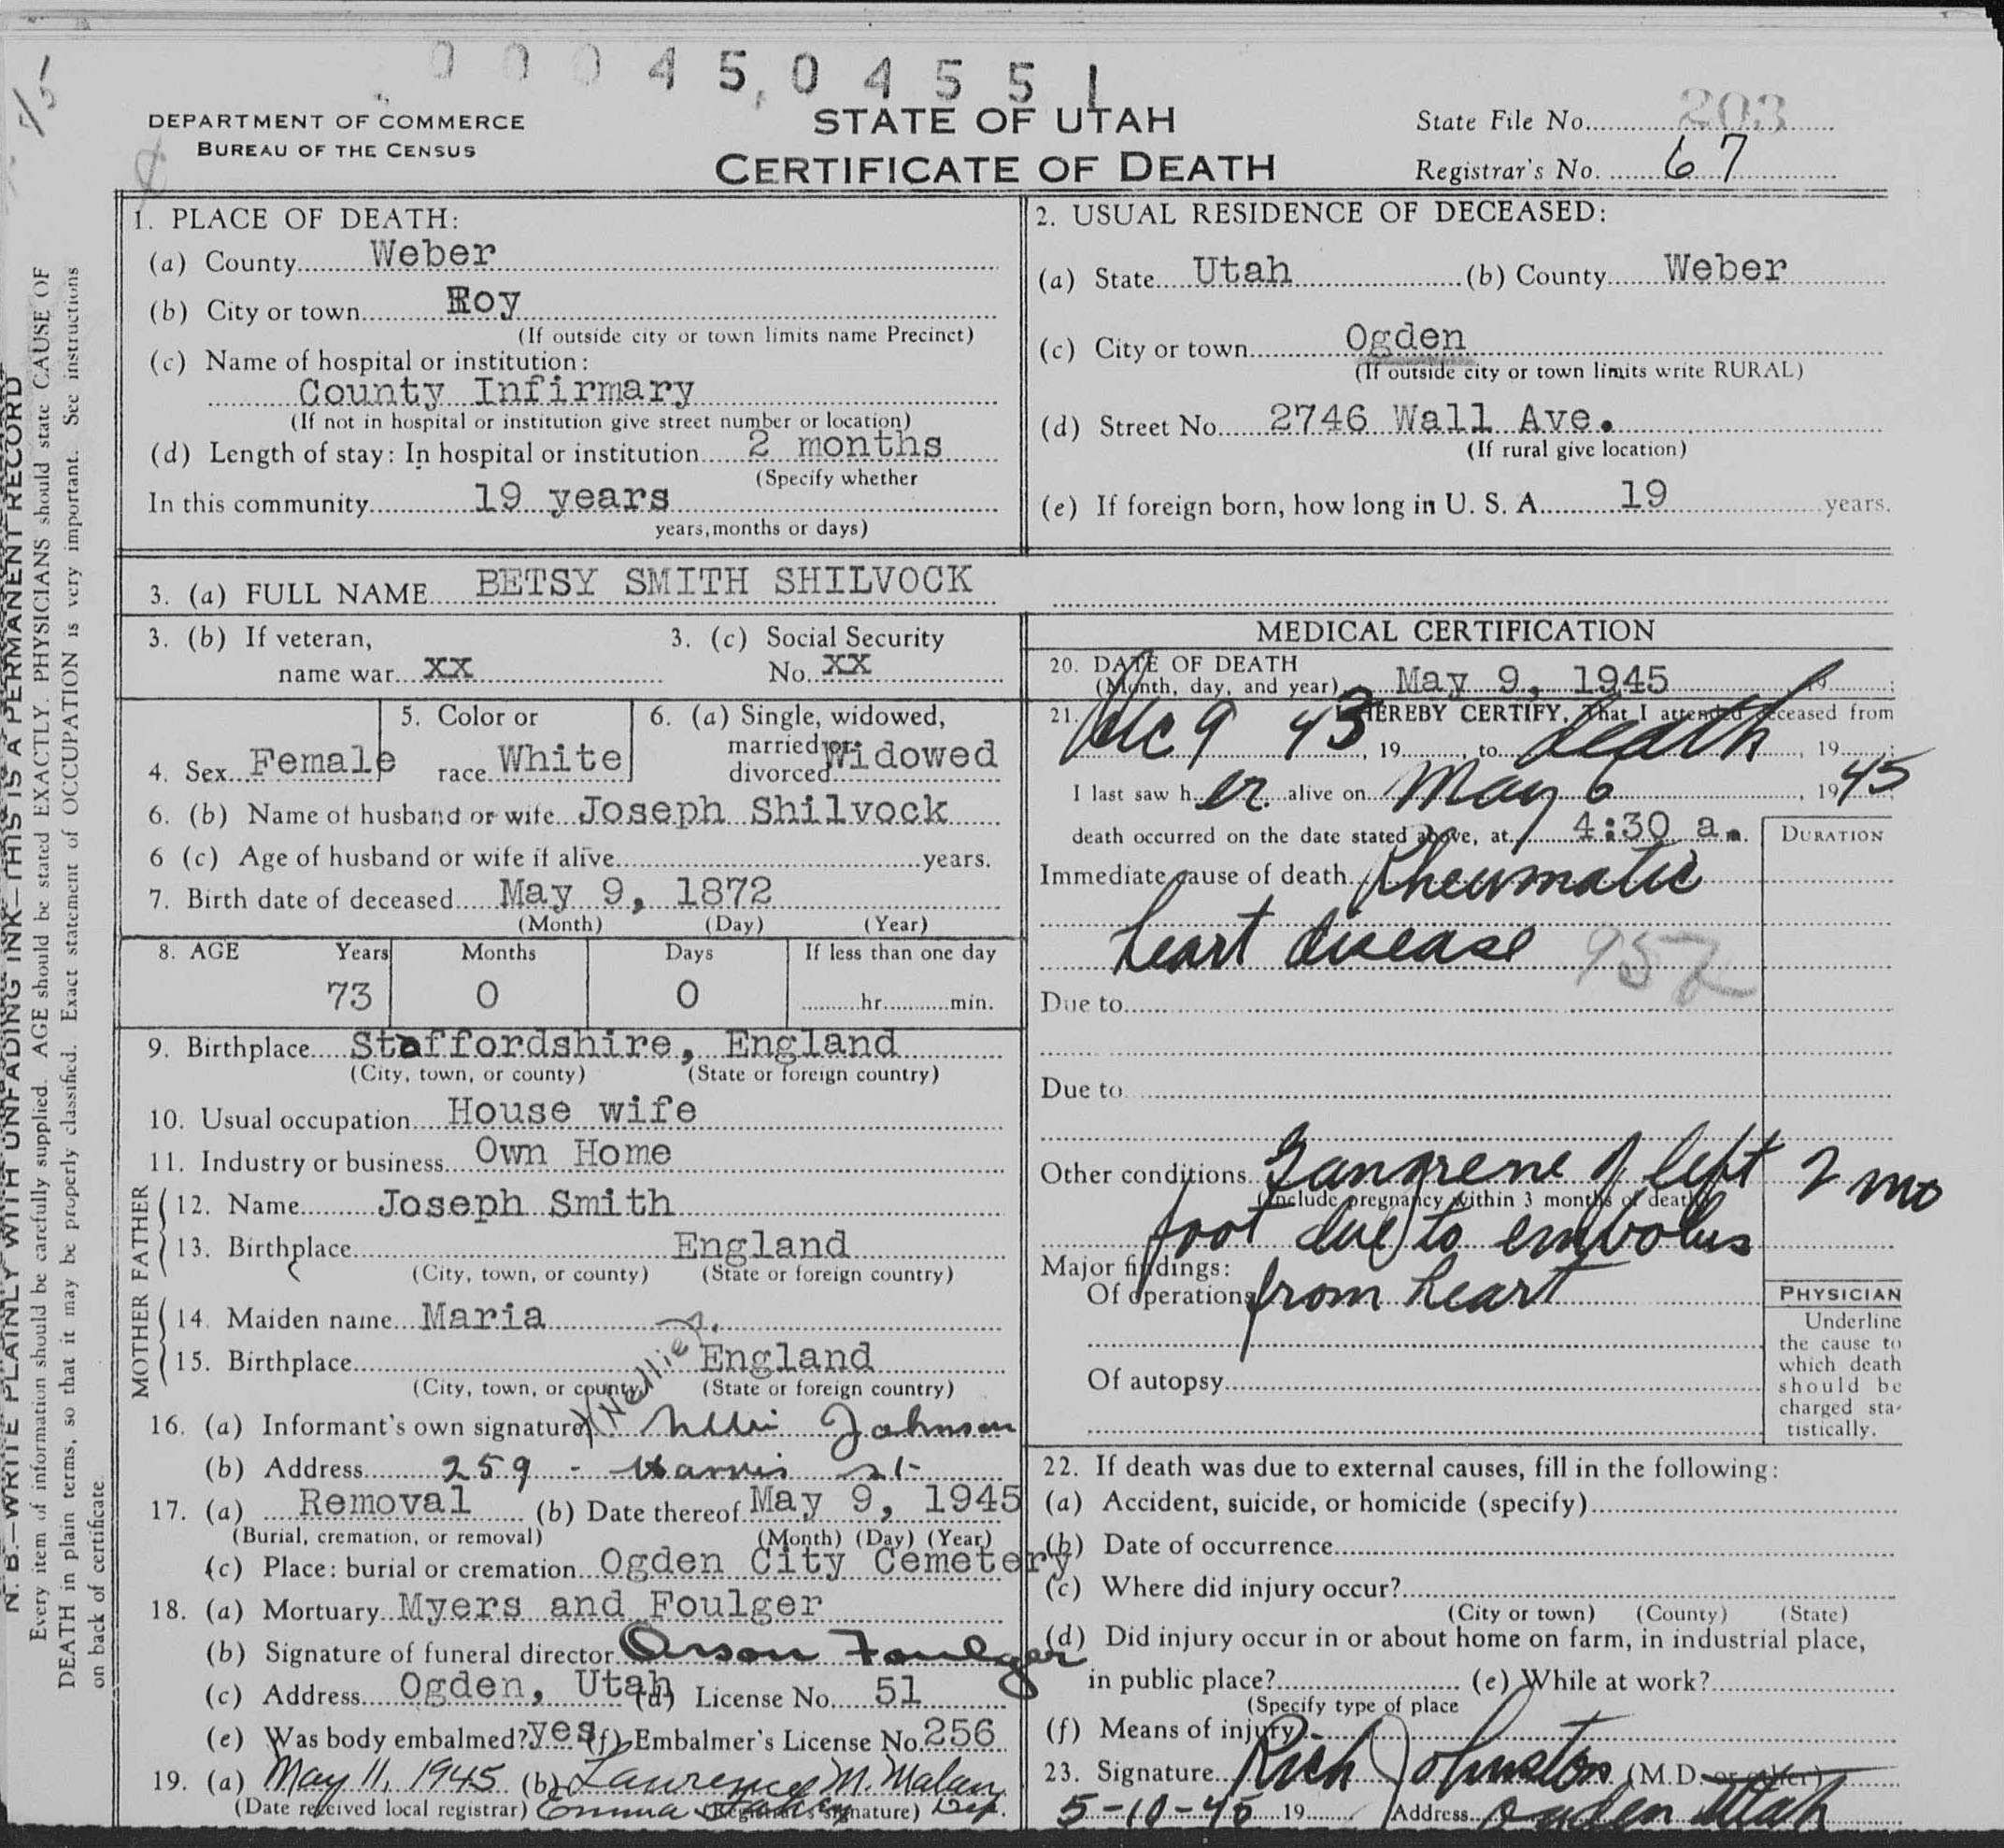 0004504551
DEPARTMENT OF COMMERCE
BUREAU OF THE CENSUS
STATE OF UTAH
CERTIFICATE OF DEATH
State File No. 203
Registrar's No. 67
N. B.—WRITE PLAINLY WITH UNFADING INK—THIS IS A PERMANENT RECORD
Every item of information should be carefully supplied. AGE should be stated EXACTLY. PHYSICIANS should state CAUSE OF
DEATH in plain terms, so that it may be properly classified. Exact statement of OCCUPATION is very important. See instructions
on back of certificate.
1. PLACE OF DEATH:
(a) County Weber
(b) City or town Roy
(If outside city or town limits name Precinct)
(c) Name of hospital or institution:
County Infirmary
(If not in hospital or institution give street number or location)
(d) Length of stay: In hospital or institution 2 months
(Specify whether
In this community 19 years
years, months or days)
2. USUAL RESIDENCE OF DECEASED:
(a) State Utah (b) County Weber
(c) City or town Ogden
(If outside city or town limits write RURAL)
(d) Street No. 2746 Wall Ave.
(If rural give location)
(e) If foreign born, how long in U. S. A. 19 years.
3. (a) FULL NAME BETSY SMITH SHILVOCK
3. (b) If veteran,
name war XX
3. (c) Social Security
No. XX
4. Sex Female
5. Color or
race White
6. (a) Single, widowed,
married or
divorced Widowed
6. (b) Name of husband or wife Joseph Shilvock
6 (c) Age of husband or wife if alive years.
7. Birth date of deceased May 9, 1872
(Month) (Day) (Year)
8. AGE Years Months Days If less than one day
73 0 0 hr. min.
9. Birthplace Staffordshire, England
(City, town, or county) (State or foreign country)
10. Usual occupation House wife
11. Industry or business Own Home
MOTHER FATHER
12. Name Joseph Smith
13. Birthplace England
(City, town, or county) (State or foreign country)
14. Maiden name Maria
15. Birthplace England
(City, town, or county) (State or foreign country)
(Nellie J.
16. (a) Informant's own signature Nellie Johnson
(b) Address 259 - Harris St.
17. (a) Removal (b) Date thereof May 9, 1945
(Burial, cremation, or removal) (Month) (Day) (Year)
(c) Place: burial or cremation Ogden City Cemetery
18. (a) Mortuary Myers and Foulger
(b) Signature of funeral director Orson Foulger
(c) Address Ogden, Utah (d) License No. 51
(e) Was body embalmed? yes (f) Embalmer's License No. 256
19. (a) May 11, 1945 (b) Lawrence M. Malan
(Date received local registrar) Emma (Registrar's signature) Dep.
MEDICAL CERTIFICATION
20. DATE OF DEATH
(Month, day, and year) May 9, 1945 19 :
21. I HEREBY CERTIFY, That I attended deceased from
Dec 9 43, 19 , to death, 19 :
I last saw her alive on May 6, 1945
death occurred on the date stated above, at 4:30 a.m.
DURATION
Immediate cause of death Rheumatic
heart disease 952
Due to
Due to
Other conditions Gangrene of left 2 mo
(Include pregnancy within 3 months of death)
foot due to embolus
Major findings:
Of operations from heart
Of autopsy
PHYSICIAN
Underline
the cause to
which death
should be
charged sta-
tistically.
22. If death was due to external causes, fill in the following:
(a) Accident, suicide, or homicide (specify)
(b) Date of occurrence
(c) Where did injury occur?
(City or town) (County) (State)
(d) Did injury occur in or about home on farm, in industrial place,
in public place? (e) While at work?
(Specify type of place
(f) Means of injury
23. Signature Rich Johnston (M.D. or other)
5-10-45 19 Address Ogden Utah